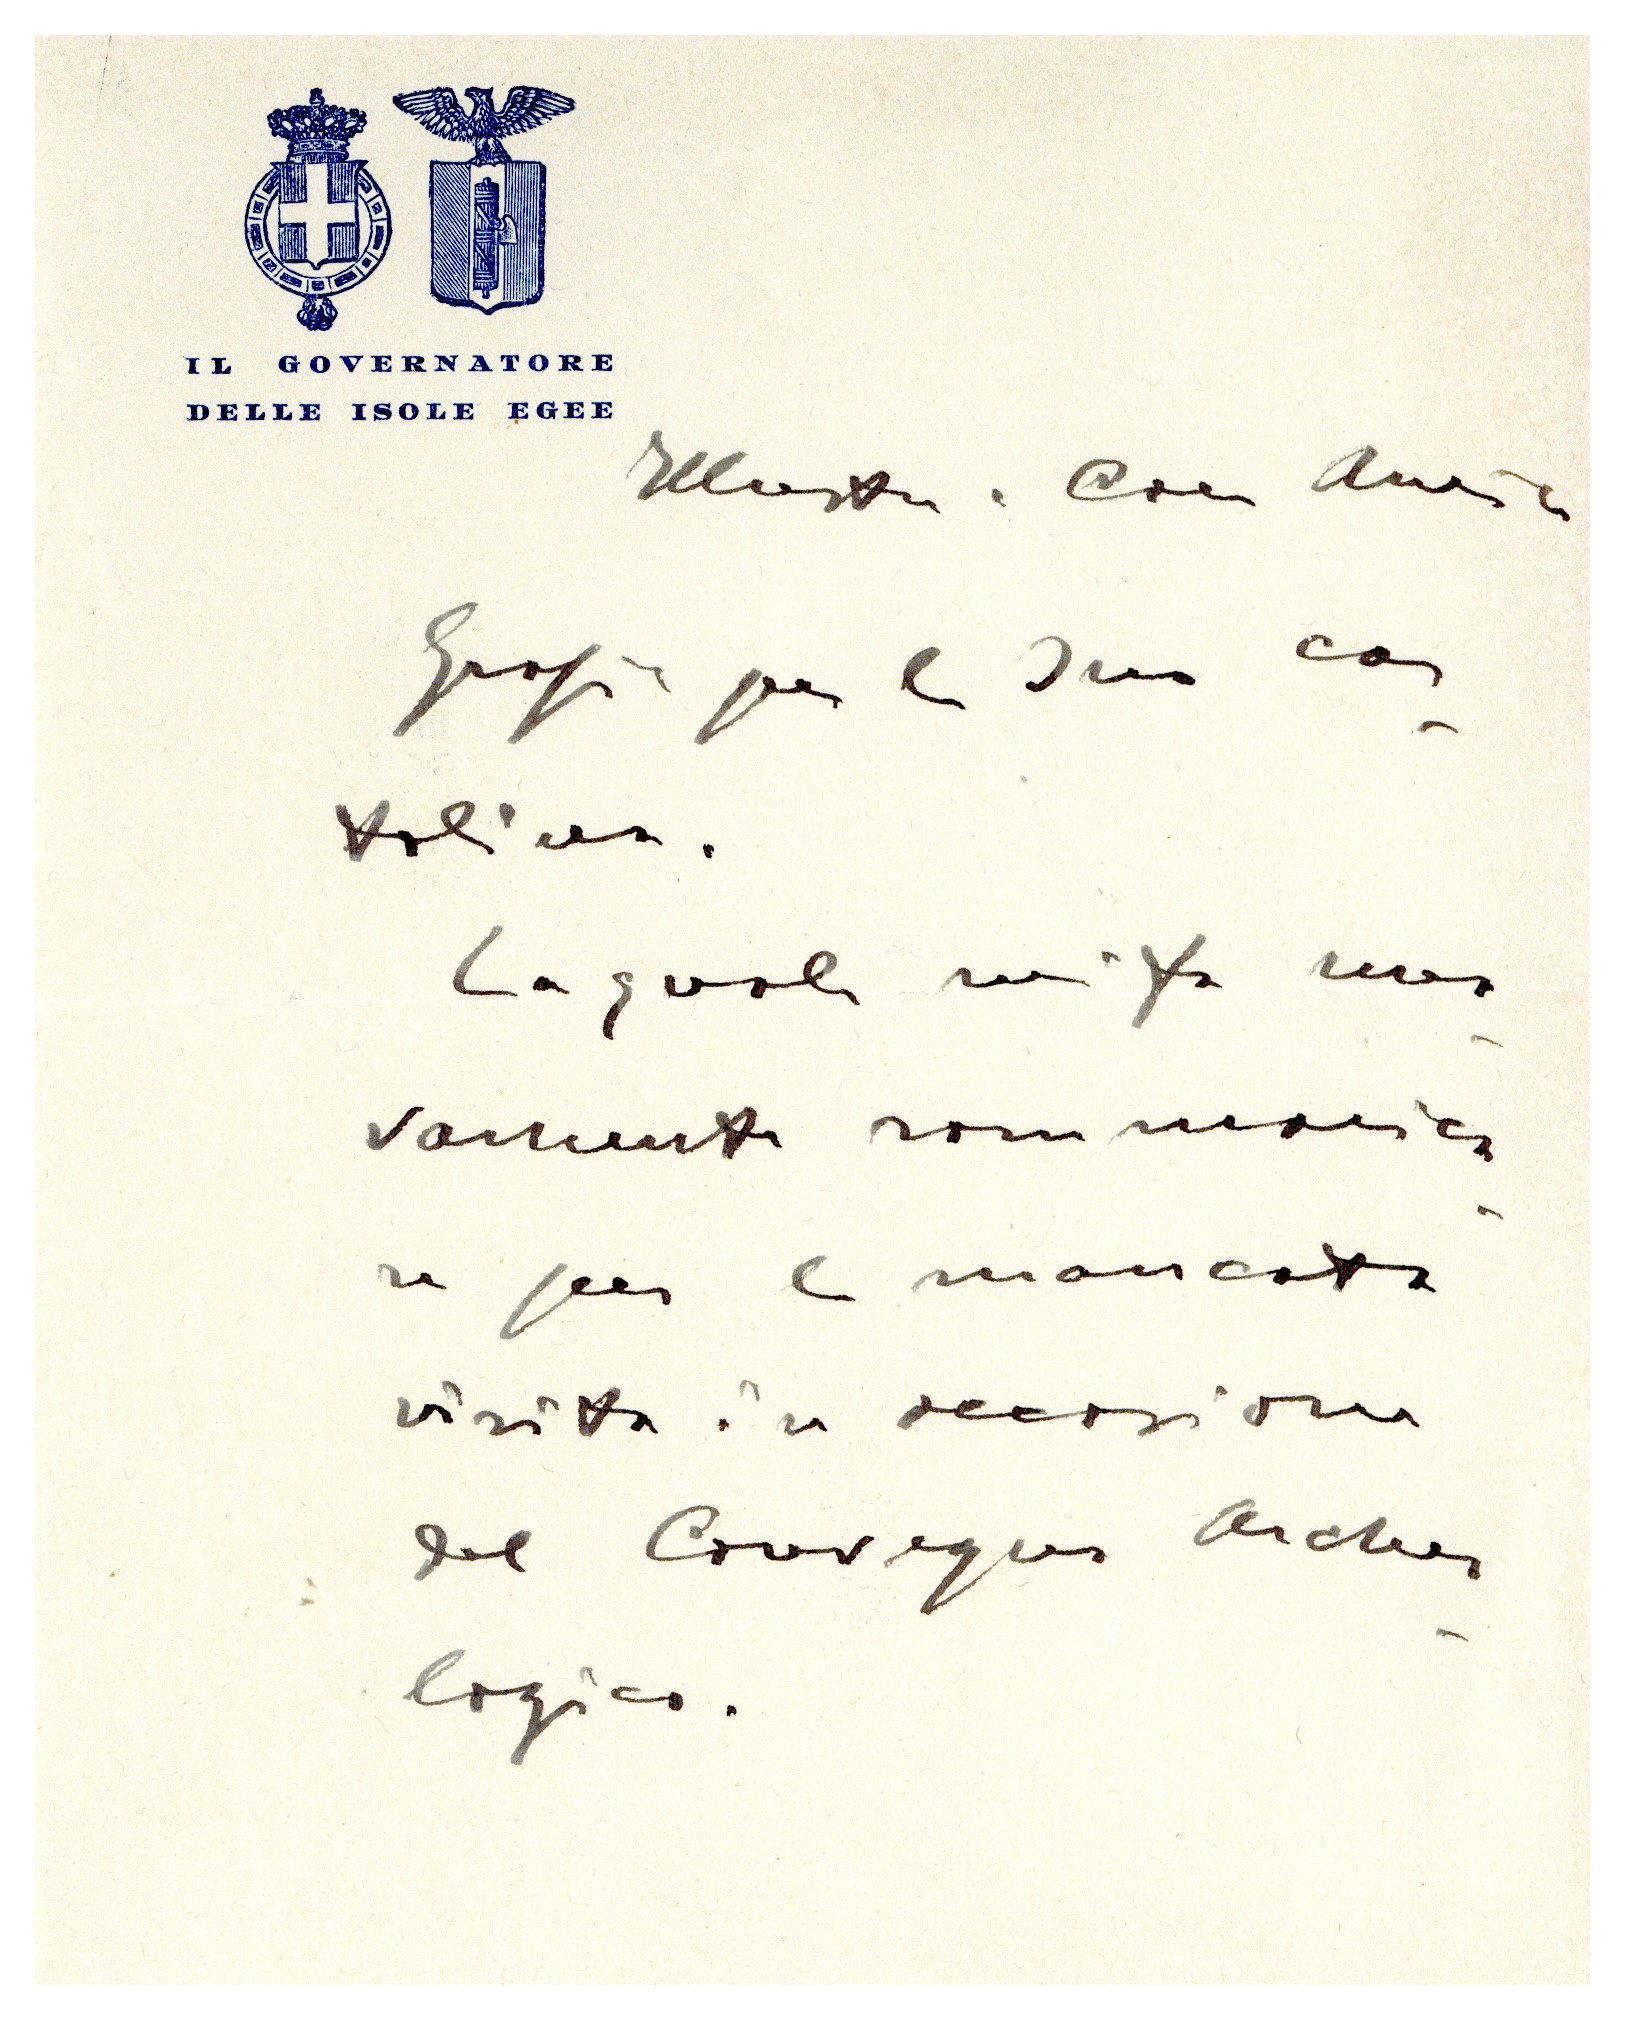 IL GOVERNATORE
DELLE ISOLE EGEE
Illustre e Caro Amico
Grazie per la Sua car-
tolina.
La quale mi fa nuo-
vamente rammarica-
re per la mancata
visita in occasione
del Convegno Archeo-
logico.